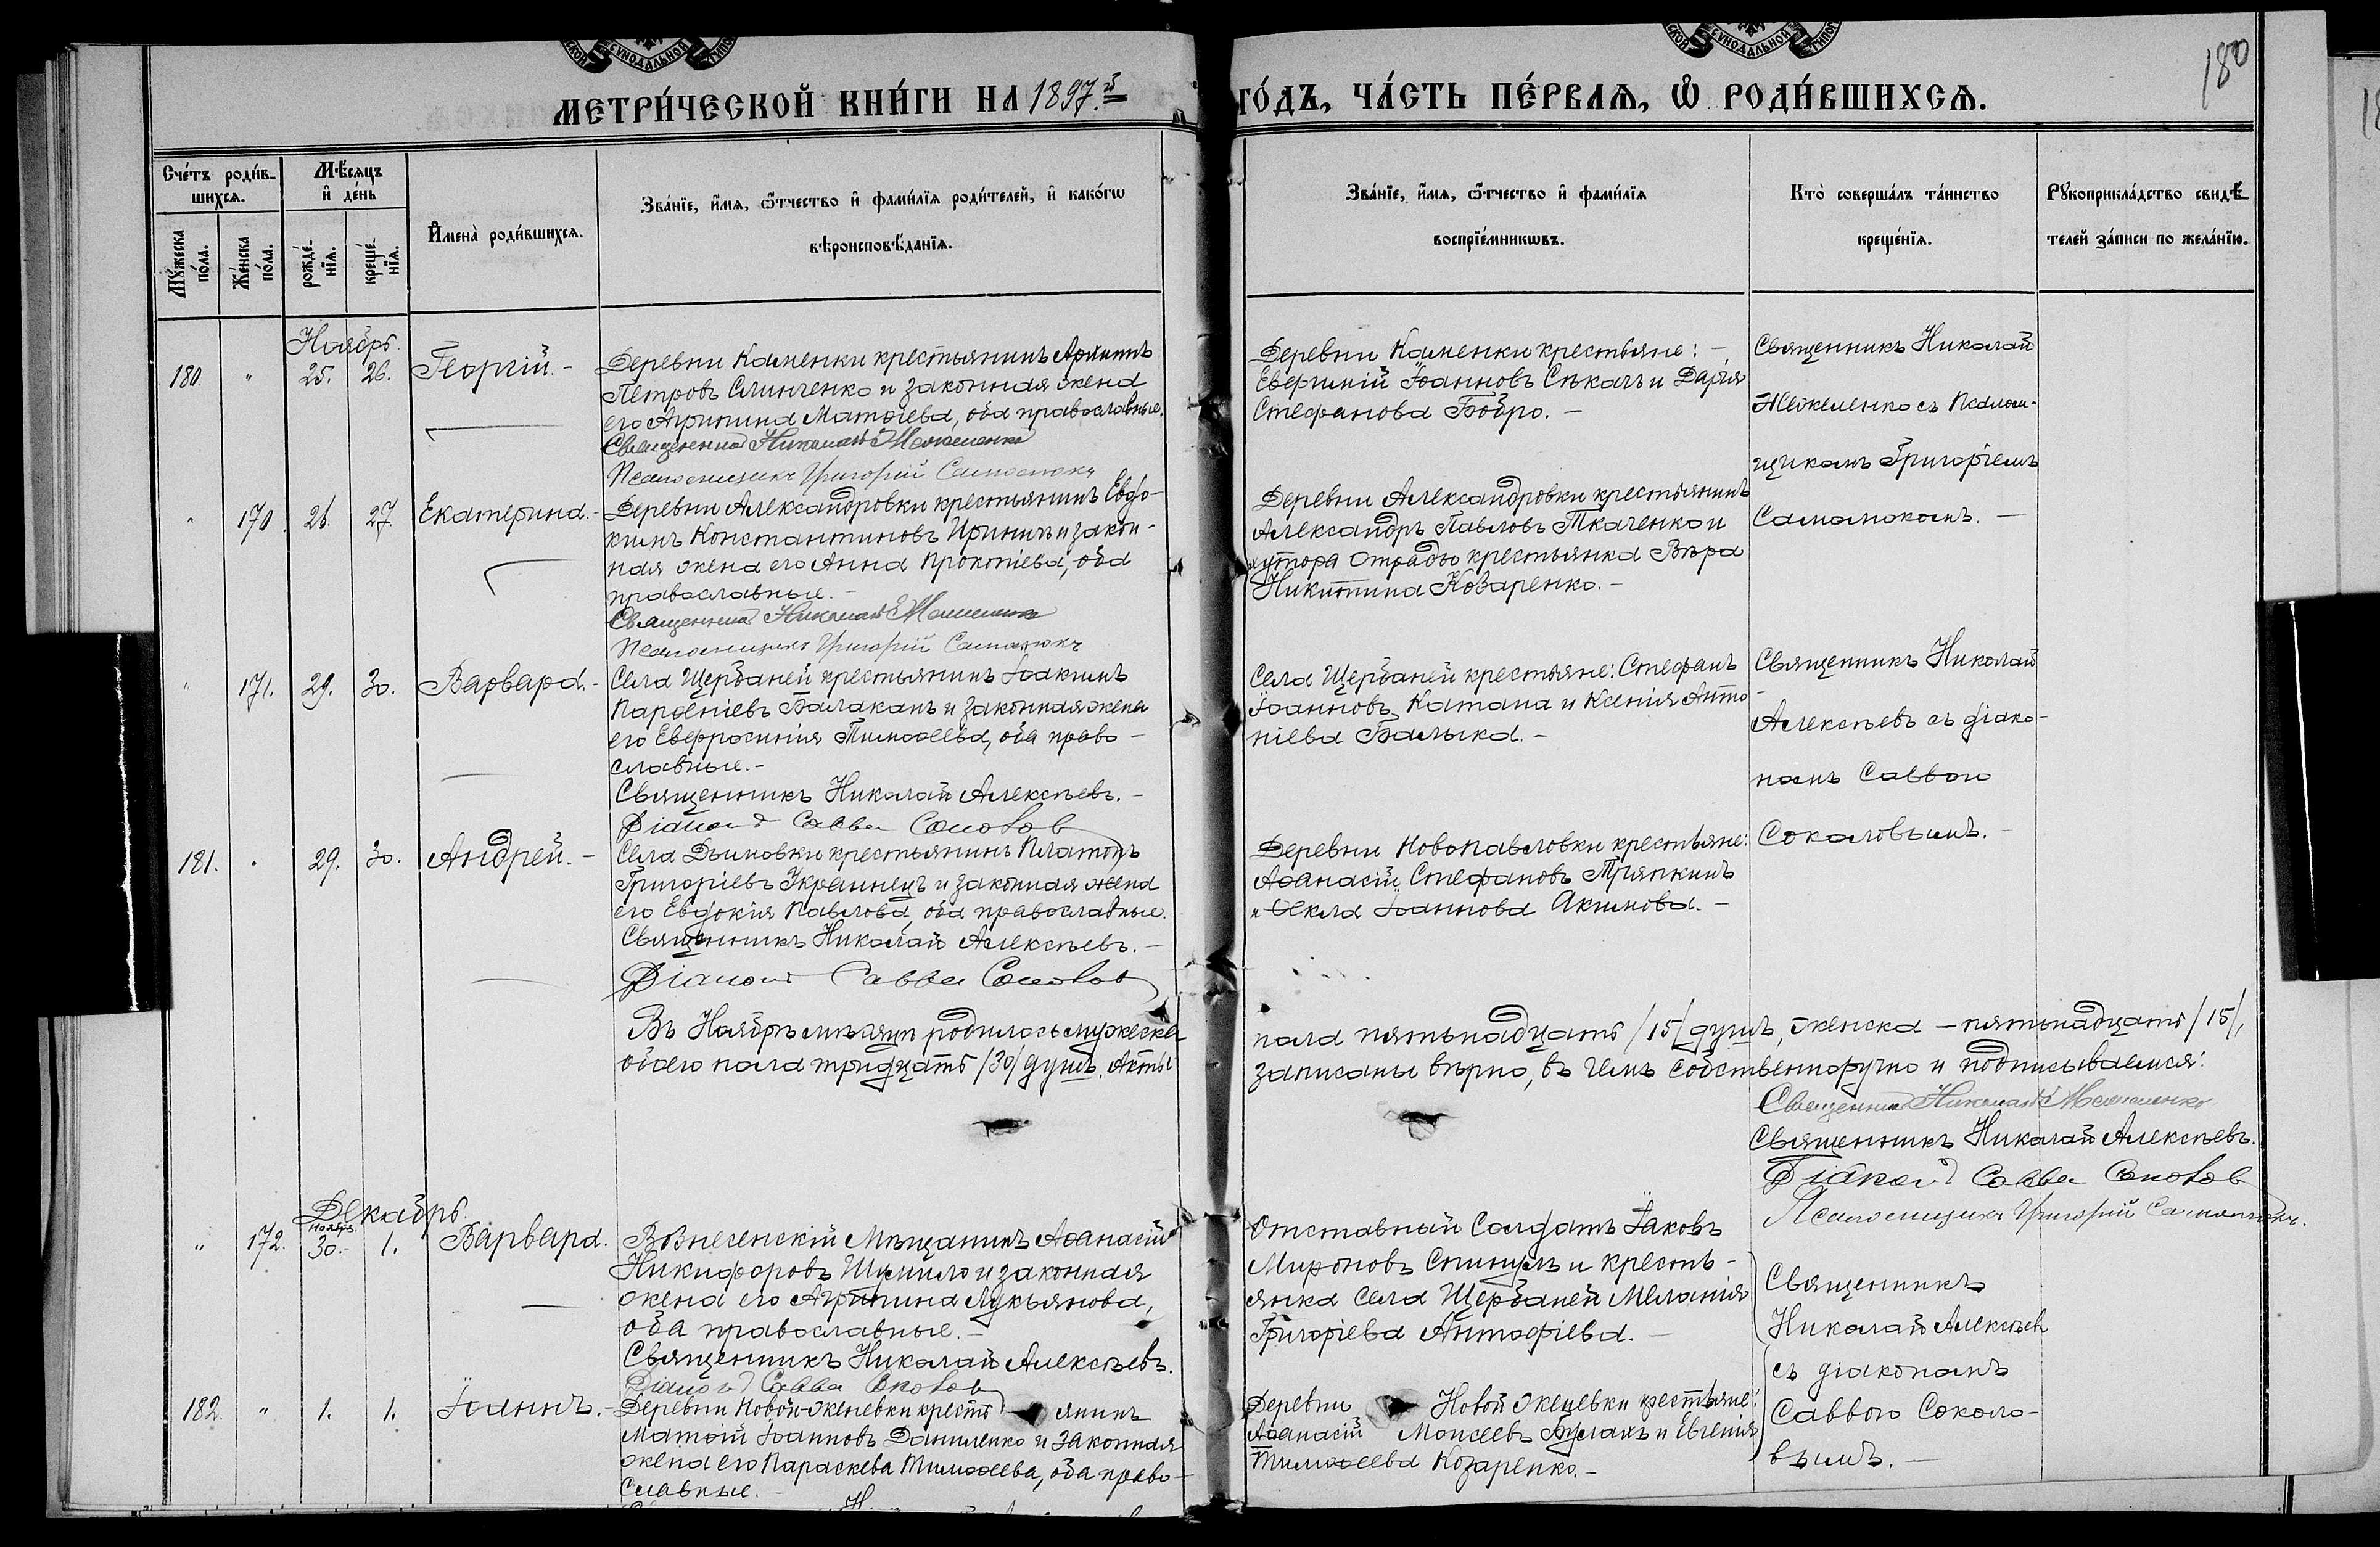 СѴНОДАЛЬНОЙ
СѴНОДАЛЬНОЙ
180
МЕТРИ́ЧЕСКОЙ КНИ́ГИ НА 1897.й ГО́ДЪ, ЧА́СТЬ ПЕ́РВАѦ, Ѡ РОДИ́ВШИХСѦ.
Сче́тъ роди́в-
шихсѧ.
Мꙋ́жеска по́ла.
Же́нска по́ла.
Мѣ́сѧцъ
и҆ де́нь
рожде́-нїѧ.
креще́-нїѧ.
И҆мена̀ роди́вшихсѧ.
Зва́нїе, и҆́мѧ, ѻ҆́тчество и҆ фами́лїѧ роди́телей, и҆ како́гѡ
вѣроисповѣ́данїѧ.
Зва́нїе, и҆́мѧ, ѻ҆́тчество и҆ фами́лїѧ
воспрїе́мникѡвъ.
Кто̀ соверша́лъ та́инство
креще́нїѧ.
Рꙋкоприкла́дство свидѣ́-
телей за́писи по жела́нїю.
Ноябрь.
180 " 25. 26. Георгій.-
Деревни Каменки крестьянинъ Архипъ
Петровъ Слинченко и законная жена
его Агрипина Матѳіева, оба православные.
Священникъ Николай
Псаломщикъ Григорій Самотокъ
Деревни Каменки крестьяне: -
Евфимій Іоанновъ Сѣкачъ и Дарія
Стефанова Бобро.-
Священникъ Николай
съ Псалом-
щикомъ Григоріемъ
Самотокомъ.-
" 170. 26. 27. Екатерина.-
Деревни Александровки крестьянинъ Евдо-
кимъ Константиновъ и закон-
ная жена его Анна Прокопіева, оба
православные.-
Священникъ Николай
Псаломщикъ Григорій Самотокъ
Деревни Александровки крестьянинъ
Александръ Павловъ Ткаченко и
хутора Отрады крестьянка Вѣра
Никитина Козаренко.-
" 171. 29. 30. Варвара.-
Села Щербаней крестьянинъ Іоакимъ
Парѳеніевъ Балаканъ и законная жена
его Евфросинія Тимоѳеева, оба право-
славные.-
Священникъ Николай Алексѣевъ.-
Діаконъ Савва Соколов
Села Щербаней крестьяне: Стефанъ
Іоанновъ Катана и Ксенія Анто-
ніева Балыка.-
Священникъ Николай
Алексѣевъ съ діако-
номъ Саввою
Соколовымъ.-
181. " 29. 30. Андрей.-
Села Дымовки крестьянинъ Платонъ
Григоріевъ Украинецъ и законная жена
его Евдокія Павлова, оба православные.
Священникъ Николай Алексѣевъ.-
Діаконъ Савва Соколов
Деревни Новопавловки крестьяне:
Аѳанасій Стефановъ Тряпкинъ
и Ѳекла Іоаннова Акимова.-
Въ Ноябрѣ мѣсяцѣ родилось мужеска пола пятьнадцать /15/ душъ, женска - пятьнадцать /15/,
обоего пола тридцать /30/ душъ. Акты записаны вѣрно, въ чемъ собственноручно и подписываемся:
Священникъ Николай
Священникъ Николай Алексѣевъ.
Діаконъ Савва Соколов
Псаломщикъ Григорій Самотокъ.
Декабрь.
Ноябр.
" 172. 30.- 1. Варвара.
Вознесенскій Мѣщанинъ Аѳанасій
Никифоровъ Шумило и законная
жена его Агрипина Лукьянова,
оба православные.-
Священникъ Николай Алексѣевъ.
Діаконъ Савва Соколов
Отставный Солдатъ Іаковъ
Мироновъ и кресть-
янка села Щербаней Меланія
Григоріева Антофіева.-
Священникъ
Николай Алексѣевъ
съ діакономъ
Саввою Соколо-
вымъ.-
182. " 1. 1. Іоаннъ.-
Деревни Новой-Женевки крестьянинъ
Матѳій Іоанновъ Даниленко и законная
жена его Параскева Тимоѳеева, оба право-
славные.-
Деревни Новой Женевки крестьяне:
Аѳанасій Моисеевъ Булахъ и Евгенія
Тимоѳеева Козаренко.-